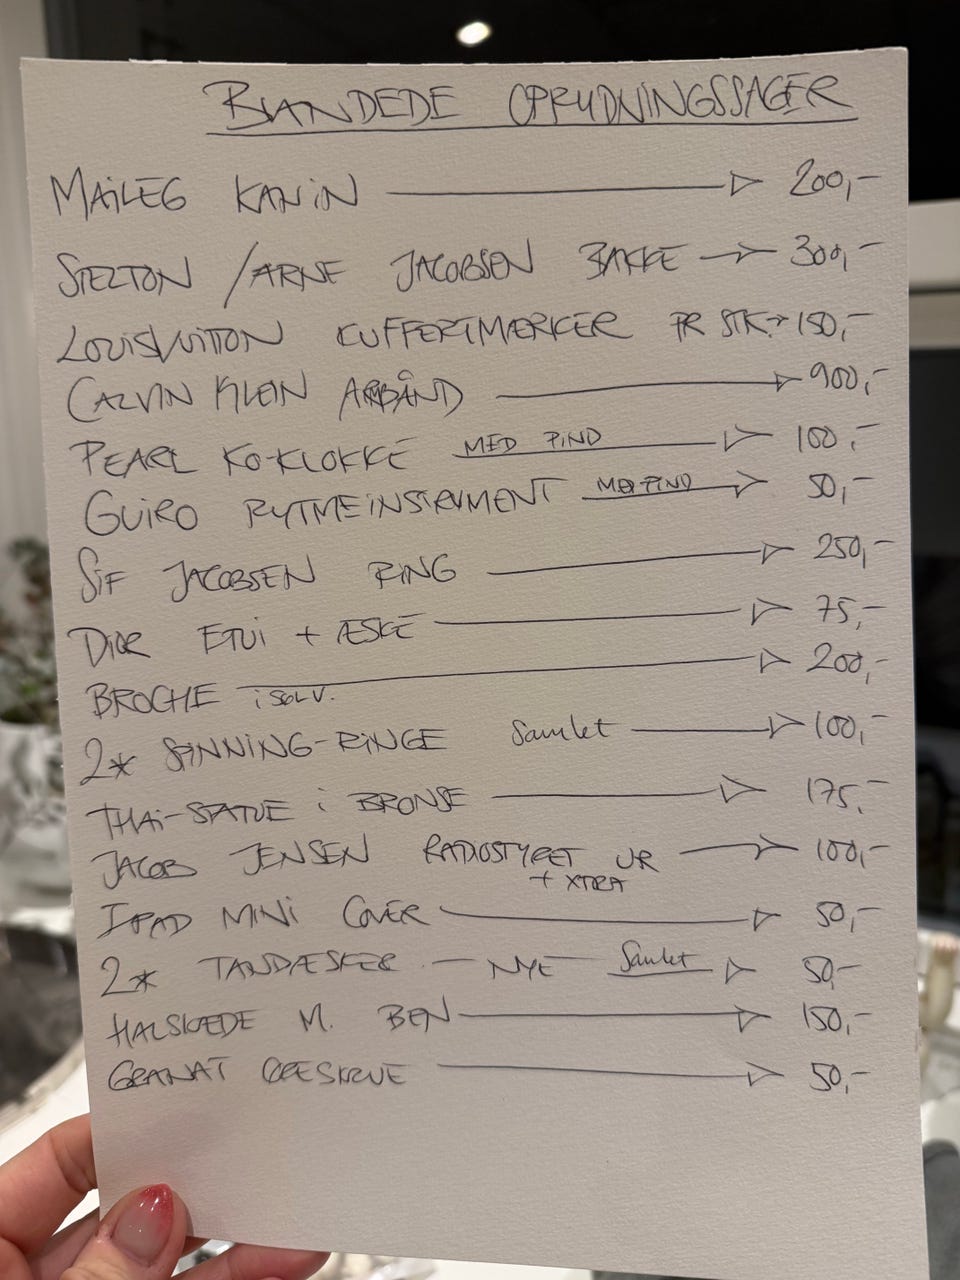 BLANDEDE OPRYDNINGSSAGER
MAILEG KANIN 200,-
STELTON / ARNE JACOBSEN BAKKE 300,-
LOUISVUITTON KUFFERTMÆRKER PR STK. 150,-
CALVIN KLEIN ARMBÅND 900,-
PEARL KO-KLOKKE MED PIND 100,-
GUIRO RYTMEINSTRUMENT MED PIND 50,-
SIF JACOBSEN RING 250,-
DIOR ETUI + ÆSKE 75,-
BROCHE i SØLV. 200,-
2* SPINNING-RINGE Samlet 100,-
THAI-STATUE i BRONSE 175,-
JACOB JENSEN RADIOSTYRET UR 100,-
+ XTRA
IPAD MINI COVER 50,-
2* TANDÆSKER - NYE Samlet 50,-
HALSKÆDE M. BEN 150,-
GRANAT ØRESKRUE 50,-